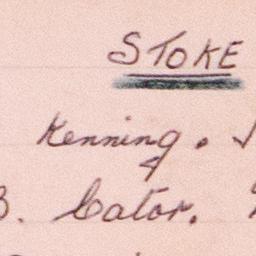 STOKE
Kenning. J
B. Cator.